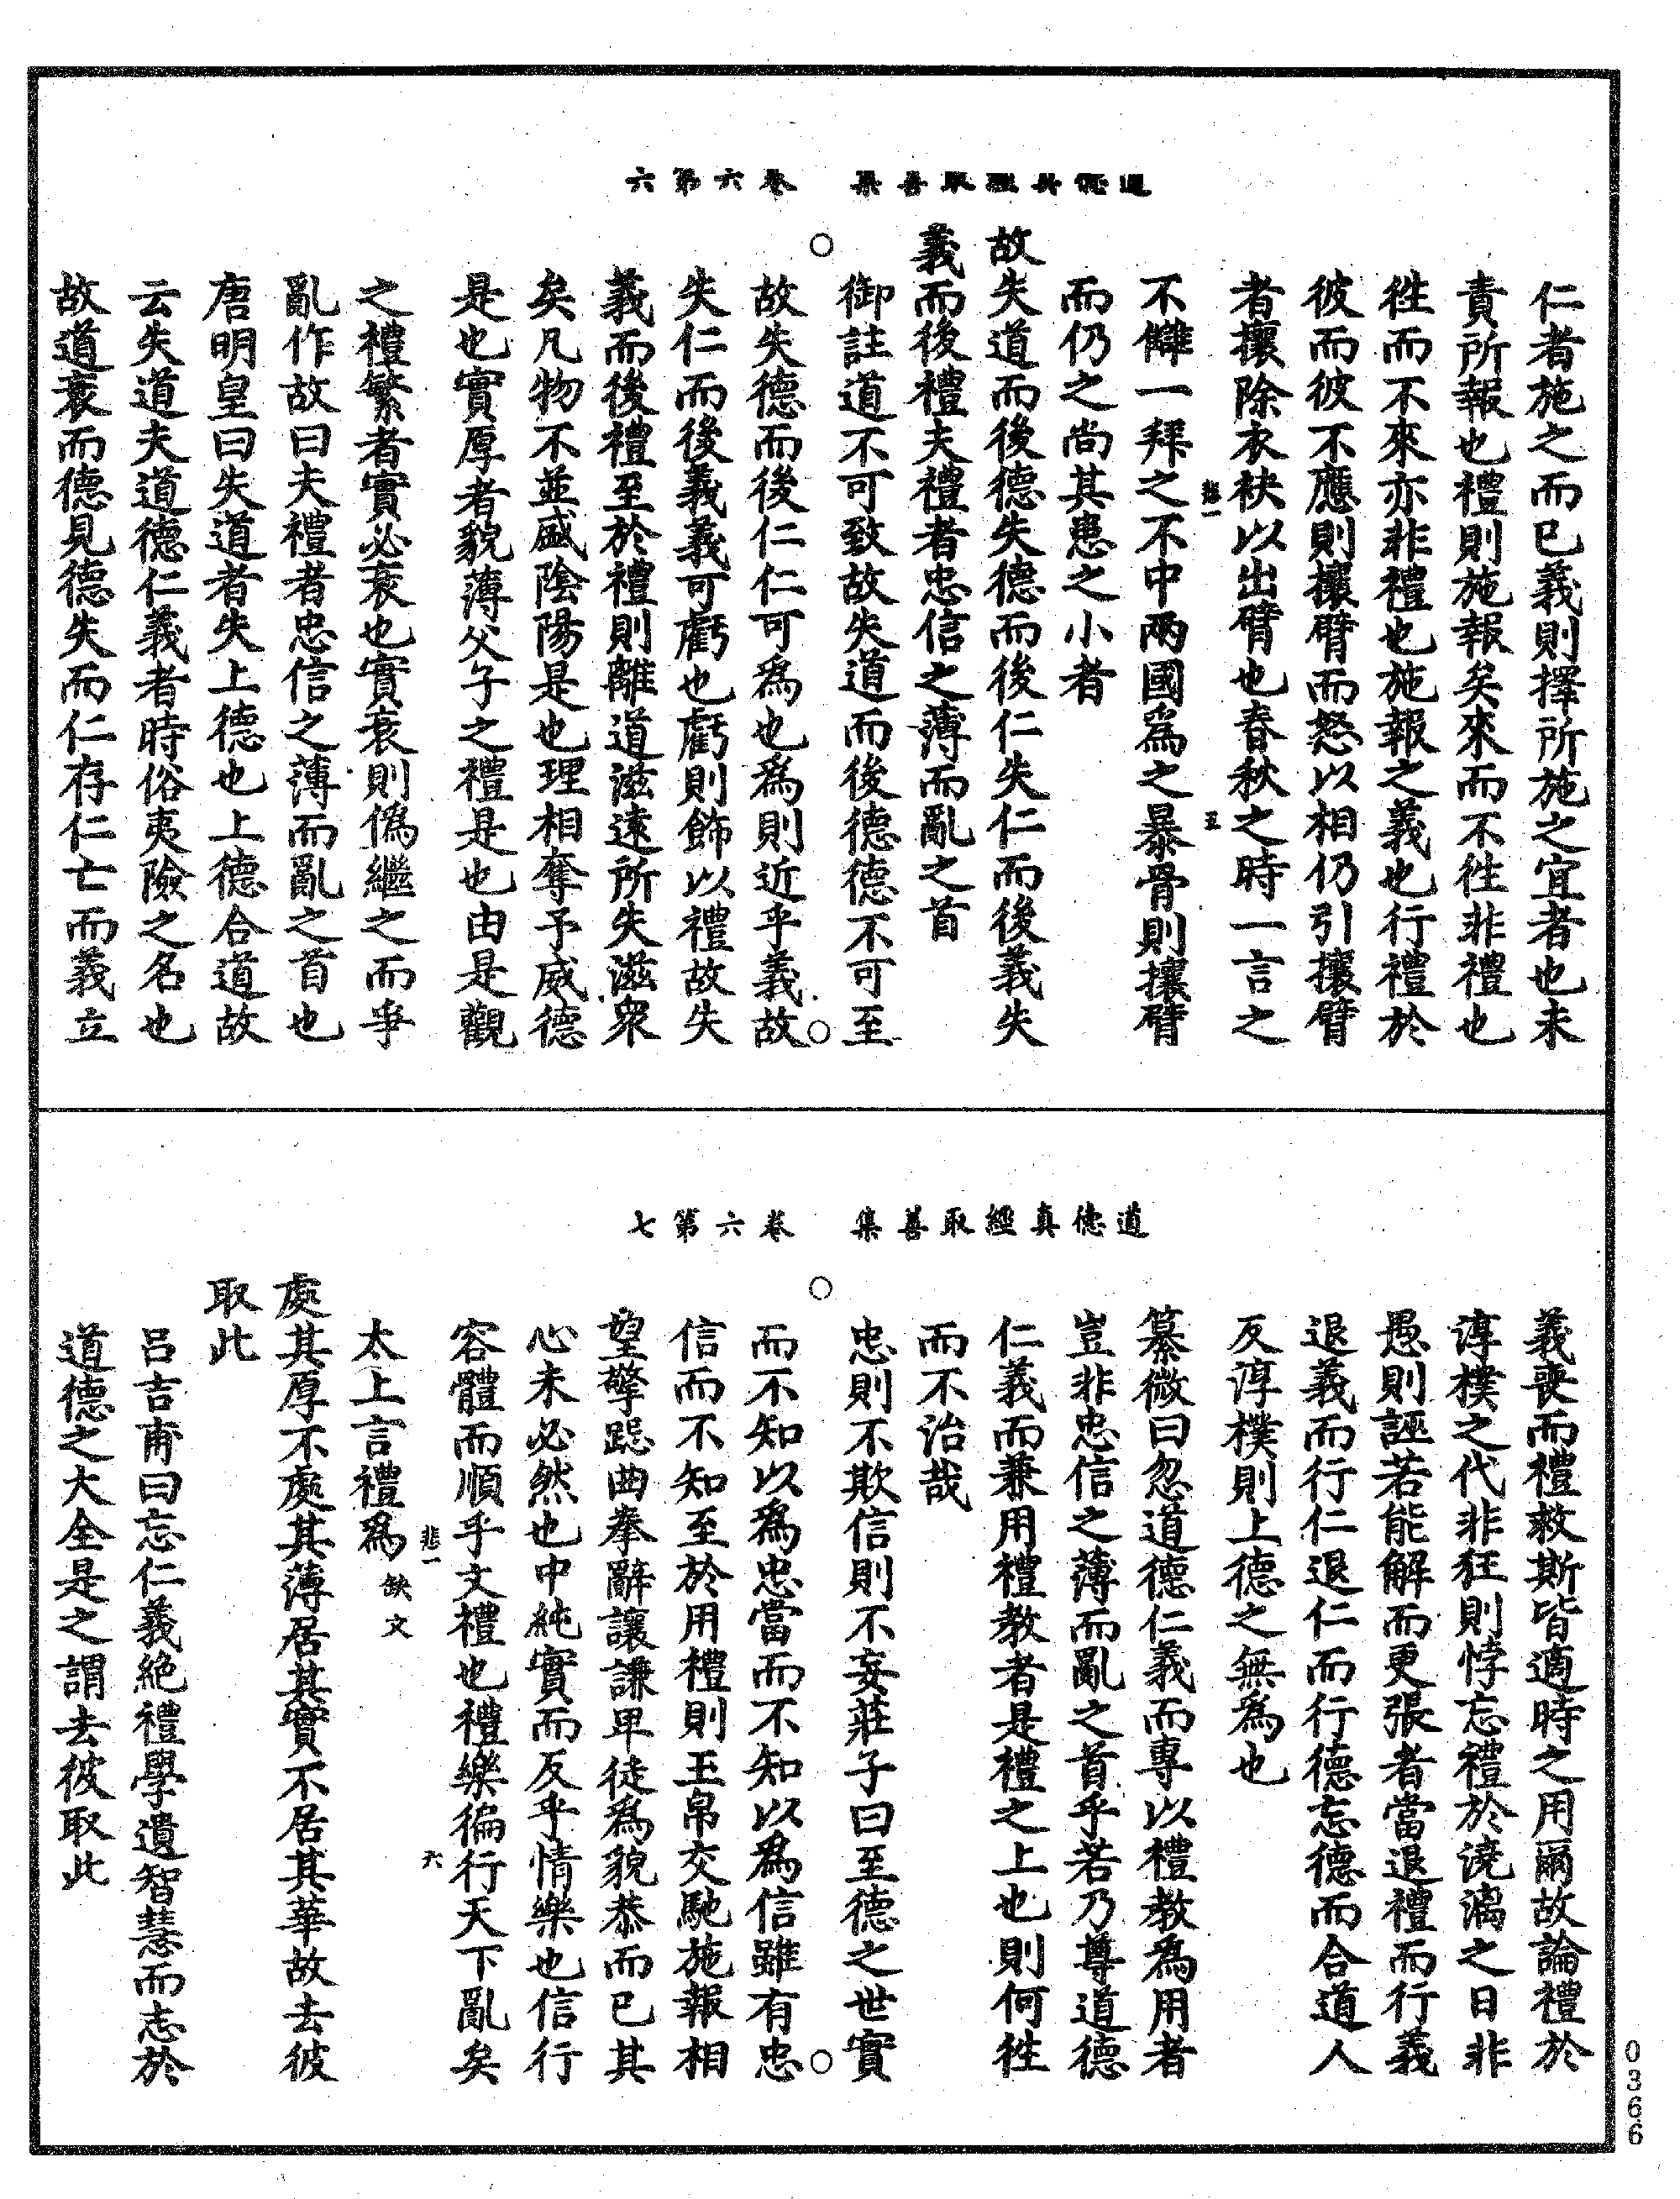 道德真經取善集　卷六第六
仁者施之而已義則擇所施之宜者也未
責所報也禮則施報矣來而不徃非禮也
徃而不來亦非禮也施報之義也行禮於
彼而彼不應則攘臂而怒以相仍引攘臂
者攘除衣袂以出臂也春秋之時一言之
悲一　五
不讎一拜之不中兩國爲之暴骨則攘臂
而仍之尚其患之小者
故失道而後德失德而後仁失仁而後義失
義而後禮夫禮者忠信之薄而亂之首
御註道不可致故失道而後德德不可至
故失德而後仁仁可爲也爲則近乎義故
失仁而後義義可虧也虧則飾以禮故失
義而後禮至於禮則離道滋遠所失滋衆
矣凡物不並盛陰陽是也理相奪予威德
是也實厚者貌薄父子之禮是也由是觀
之禮繁者實必衰也實衰則僞繼之而爭
亂作故曰夫禮者忠信之薄而亂之首也
唐明皇曰失道者失上德也上德合道故
云失道夫道德仁義者時俗夷險之名也
故道衰而德見德失而仁存仁亡而義立
道德真經取善集　卷六第七
義喪而禮救斯皆適時之用爾故論禮於
淳樸之代非狂則悖忘禮於澆漓之日非
愚則誣若能解而更張者當退禮而行義
退義而行仁退仁而行德忘德而合道人
反淳樸則上德之無爲也
纂微曰忽道德仁義而專以禮教爲用者
豈非忠信之薄而亂之首乎若乃尊道德
仁義而兼用禮教者是禮之上也則何徃
而不治哉
忠則不欺信則不妄莊子曰至德之世實
而不知以爲忠當而不知以爲信雖有忠
信而不知至於用禮則玉帛交馳施報相
望擎跽曲拳辭讓謙卑徒爲貌恭而已其
心未必然也中純實而反乎情樂也信行
容體而順乎文禮也禮樂徧行天下亂矣
悲一　六
太上言禮爲缺文
處其厚不處其薄居其實不居其華故去彼
取此
呂吉甫曰忘仁義絕禮學遺智慧而志於
道德之大全是之謂去彼取此
0366